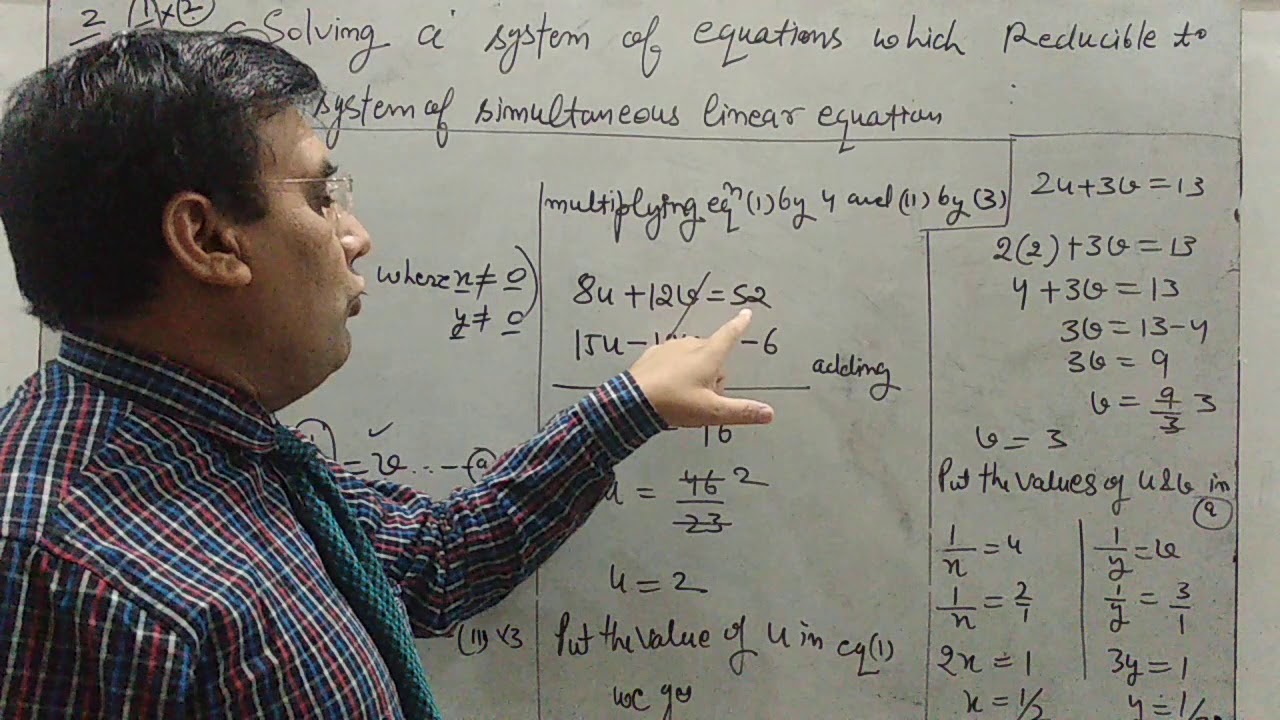 2 (1)×(2) Solving a system of equations which Reducible to
system of simultaneous linear equation
where x ≠ 0
y ≠ 0
= v ... - (a)
(11) × 3
multiplying eqn (1) by 4 and (11) by (3)
8u + 12v = 52
15u - 12 - 6
adding
46
u = 46/23 2
u = 2
Put the value of u in eq(1)
we get
2u + 3v = 13
2(2) + 3v = 13
4 + 3v = 13
3v = 13 - 4
3v = 9
v = 9/3 3
v = 3
Put the values of u & v in
(a)
1/x = u
1/x = 2/1
2x = 1
x = 1/2
1/y = v
1/y = 3/1
3y = 1
y = 1/